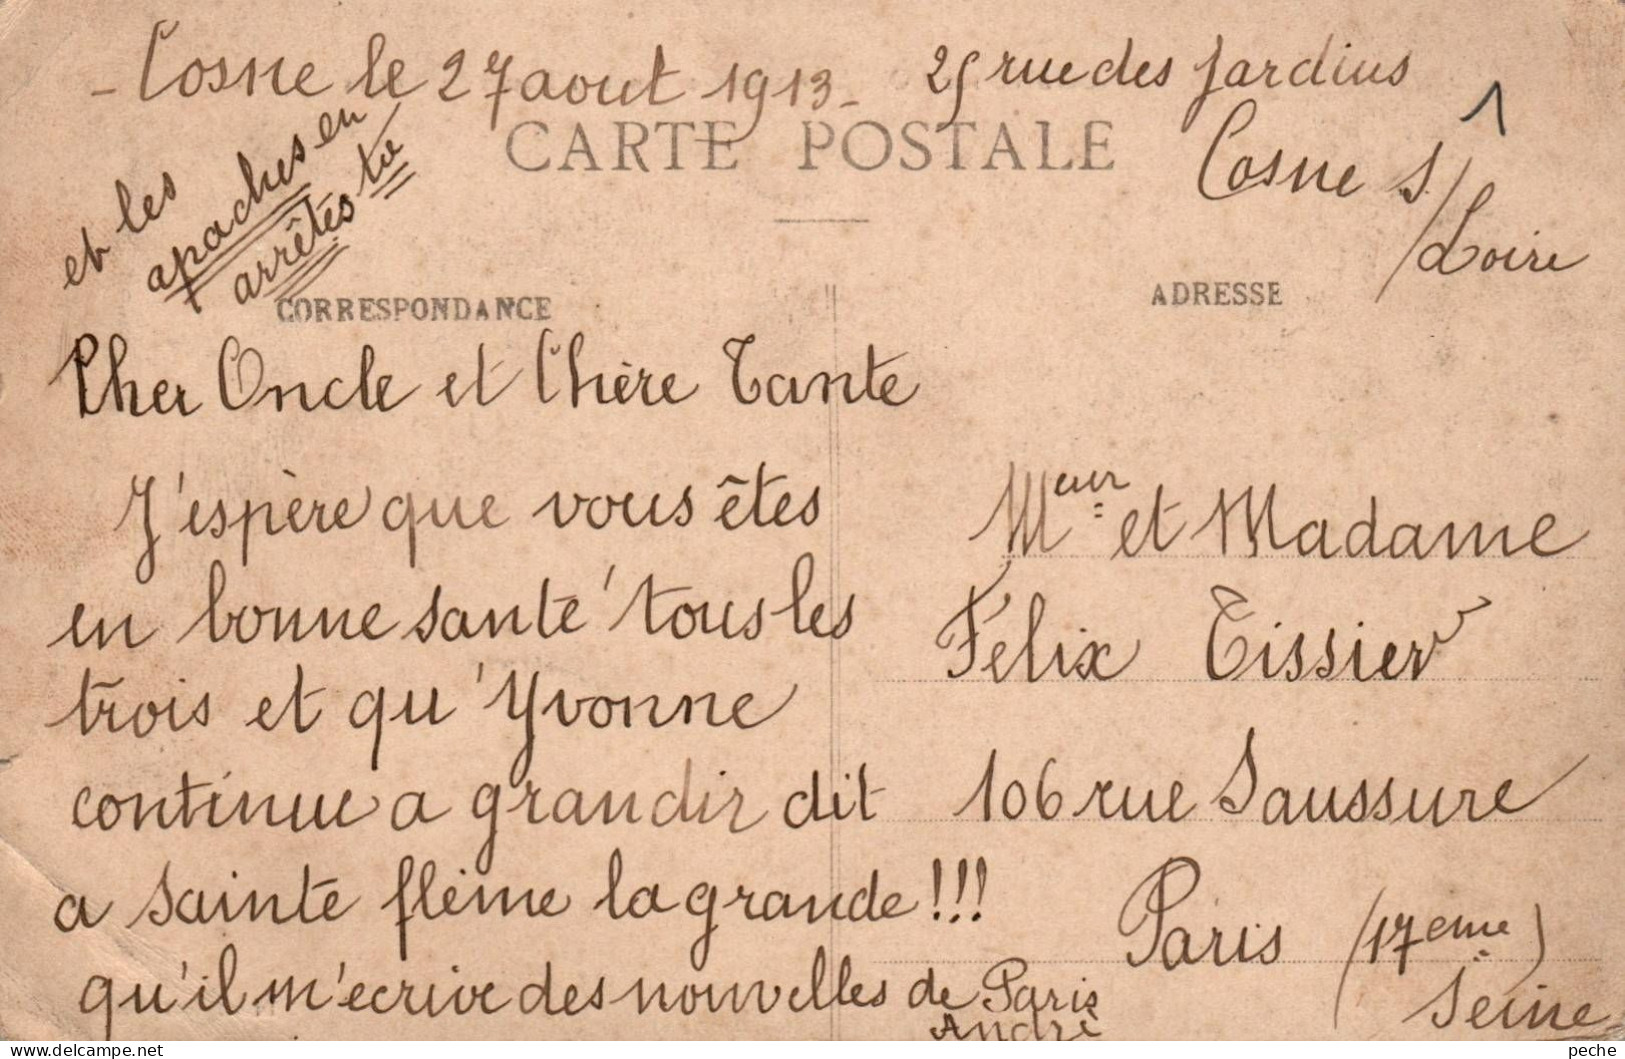 - Cosne le 27 aout 1913 - 25 rue des Jardins
1
CARTE POSTALE
Cosne s/Loire
et les
apaches en
arrêtes tu
CORRESPONDANCE
ADRESSE
Cher Oncle et Chère Tante
J'espère que vous êtes
en bonne santé tous les
trois et qu'Yvonne
continue a grandir dit
a sainte flème la grande!!!
qu'il m'ecrive des nouvelles de Paris
André
Meur et Madame
Félix Tissier
106 rue Saussure
Paris (17eme)
Seine
peche